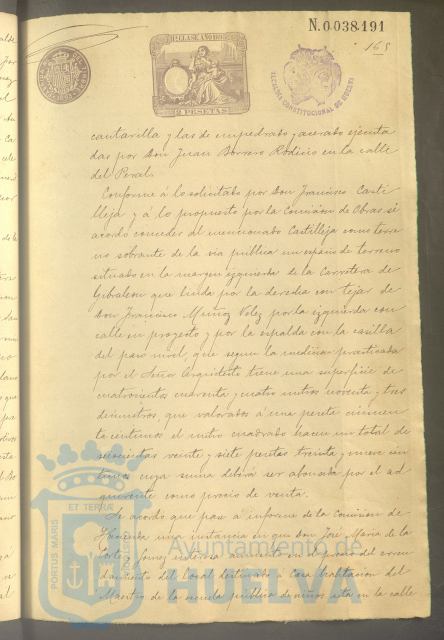 N.0.038.191
165
11ª CLASE AÑO 19
2 PESETAS
ALCALDIA CONSTITUCIONAL DE HUELVA
cantarilla y las de empedrado y acerado ejecuta
das por Don Juan Borrero Rodicio en la calle
del Peral.
Conforme á lo solicitado por Don Francisco Casti
lleja y á lo propuesto por la Comisión de Obras se
acordó conceder al mencionado Castilleja como terre
no sobrante de la via publica un espacio de terreno
situado en la margen izquierda de la Carretera de
Gibraleon que linda por la derecha con tejar de
Don Francisco Muñoz Velez por la izquierda con
calle en proyecto y por la espalda con la casilla
del paso nivel, que segun la medicion practicada
por el Señor Arquitecto tiene una superficie de
cuatrocientos cuarenta y cuatro metros noventa y tres
decimetros que valorados á una peseta cincuen
ta centimos el metro cuadrado hacen un total de
seiscientas veinte y siete pesetas treinta y nueve cen
timos cuya suma deberá ser abonada por el ad
quirente como precio de venta.
Se acordó que pase á informe de la Comision de
Hacienda una instancia en que don José Maria de la
Corte y
del arren
damiento del local destinado a casa habitacion del
Maestro de la escuela publica de niños sita en la calle
PORTUS MARIS
ET TERRÆ
CUSTODIA
Ayuntamiento de
HUELVA